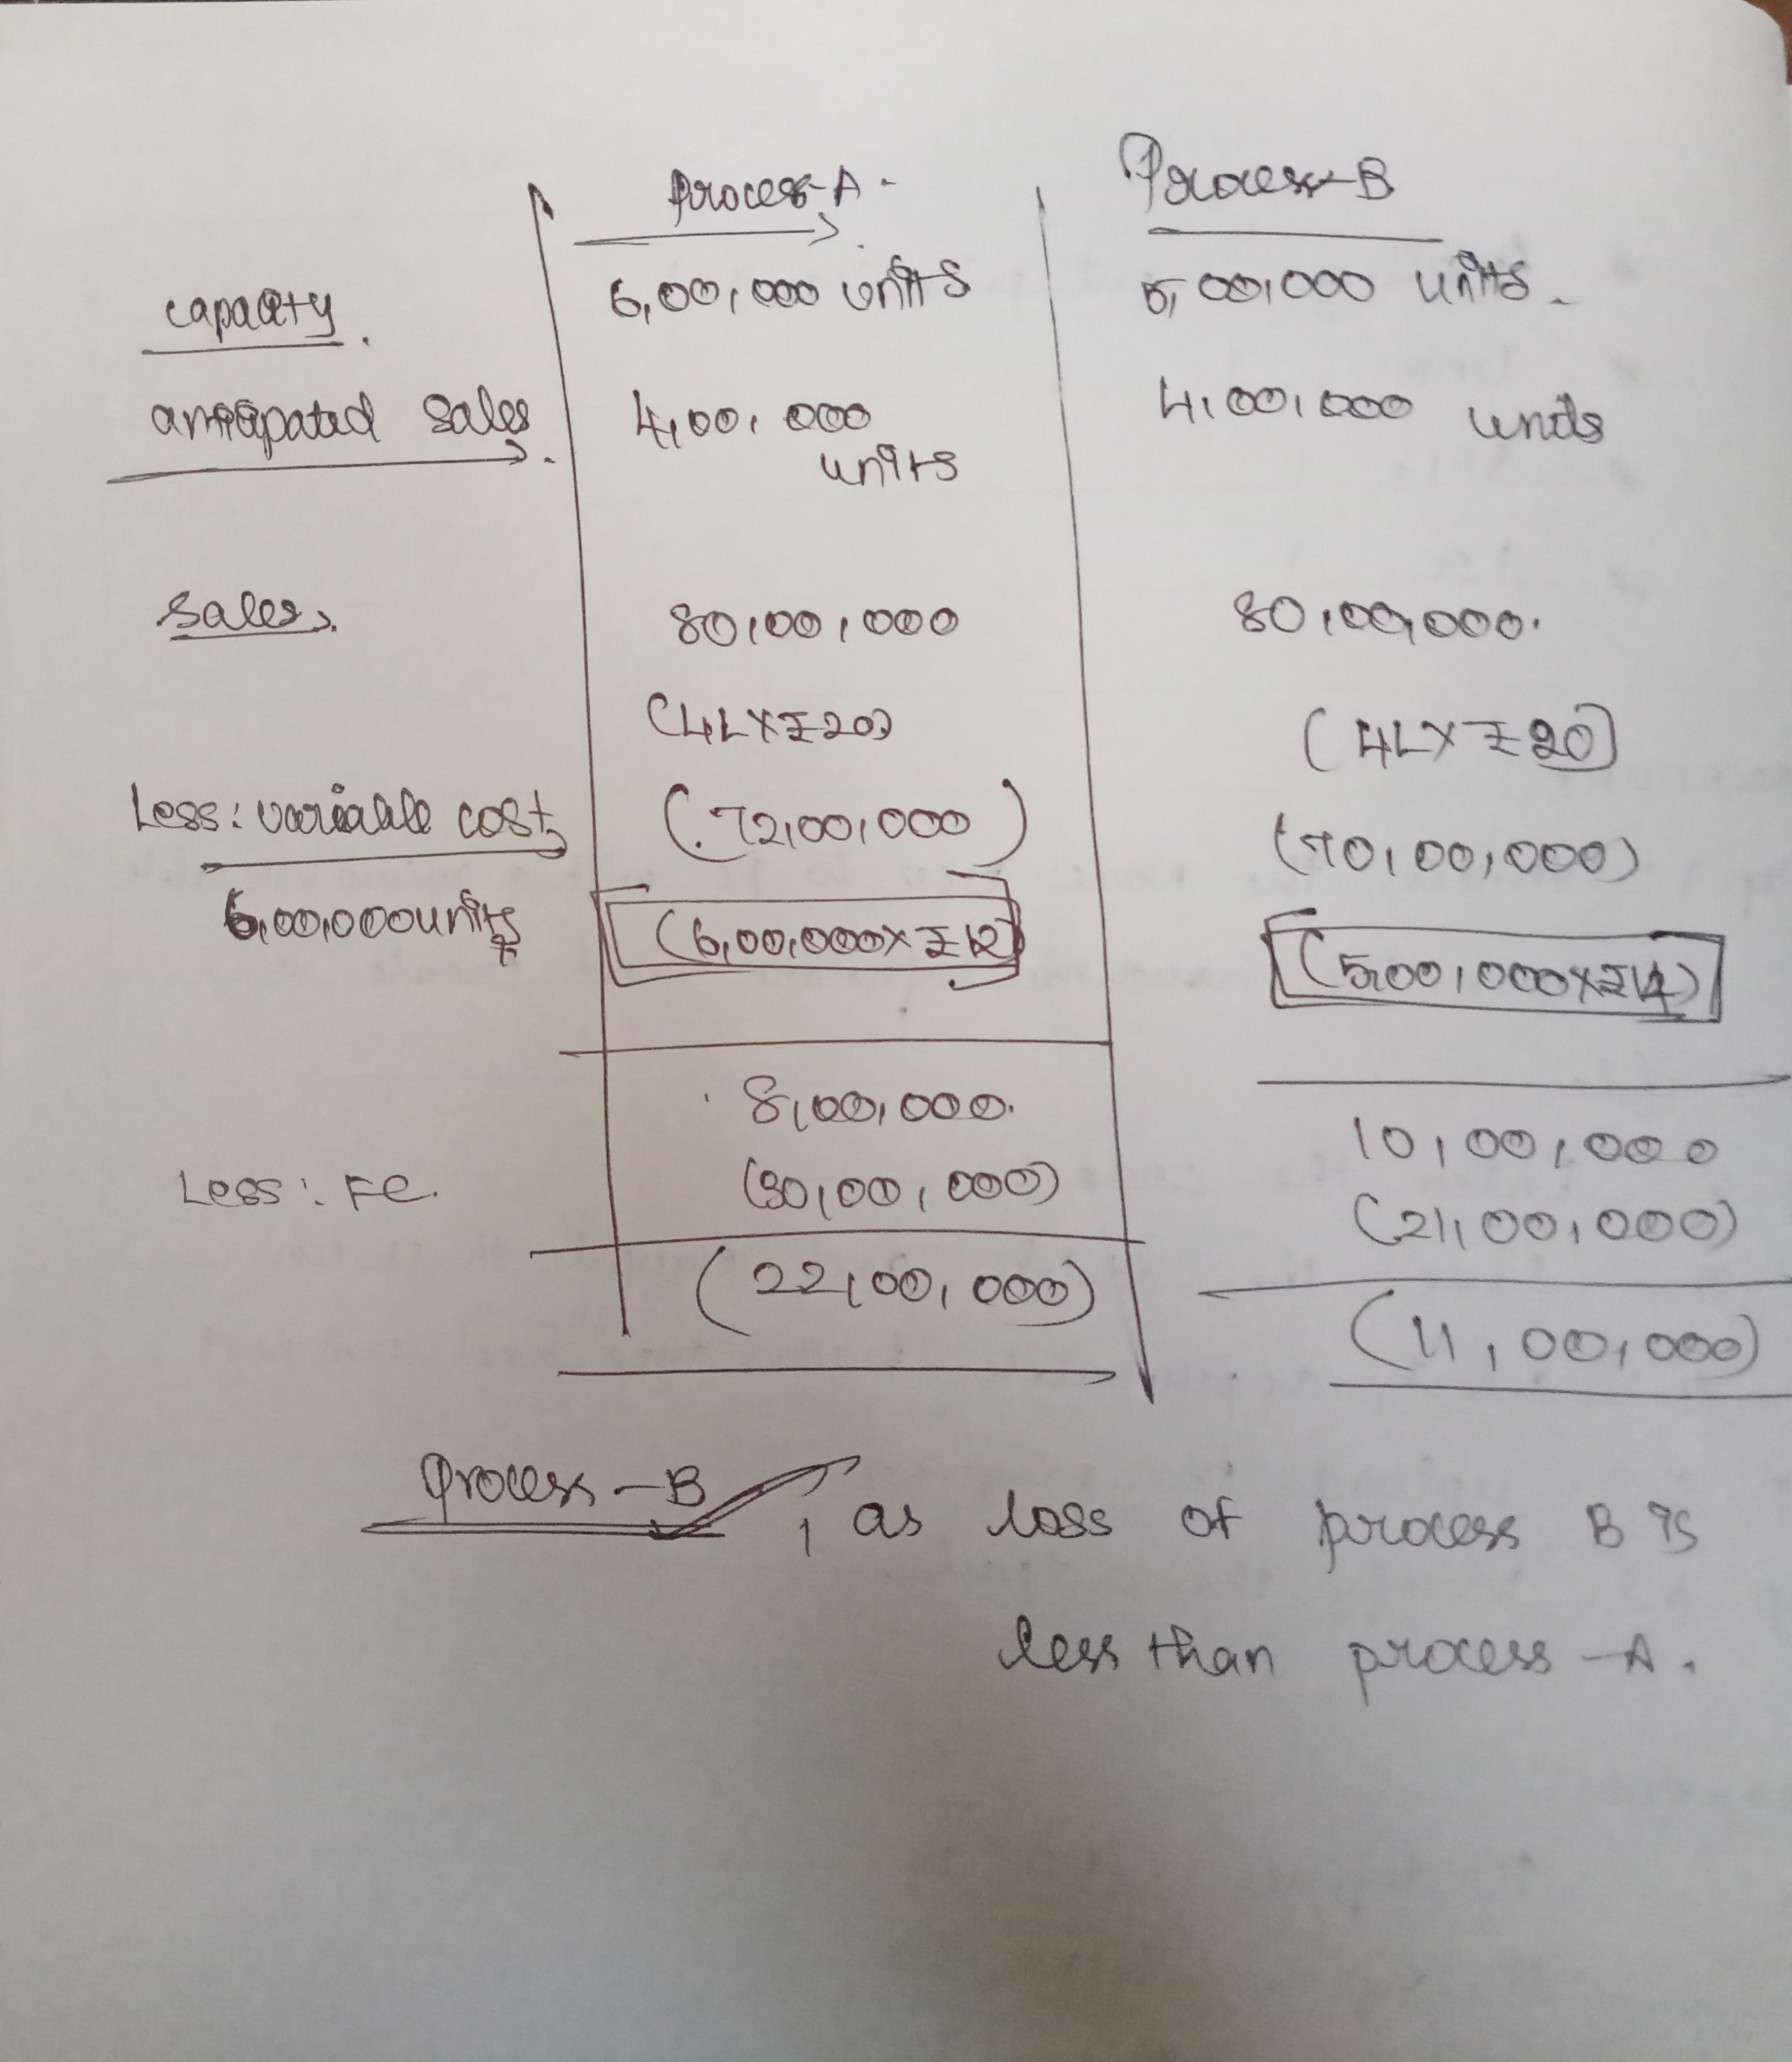 Process-A - Process-B
capacity. 6,00,000 units 5,00,000 units.
anticipated sales. 4,00,000 units 4,00,000 units
sales. 80,00,000 80,00,000.
(4L×₹20) (4L×₹20)
Less: variable cost (72,00,000) (70,00,000)
6,00,000 units (6,00,000×₹12) (5,00,000×₹14)
8,00,000. 10,00,000
Less: FC. (30,00,000) (21,00,000)
(22,00,000) (11,00,000)
Process-B, as loss of process B is
less than process-A.